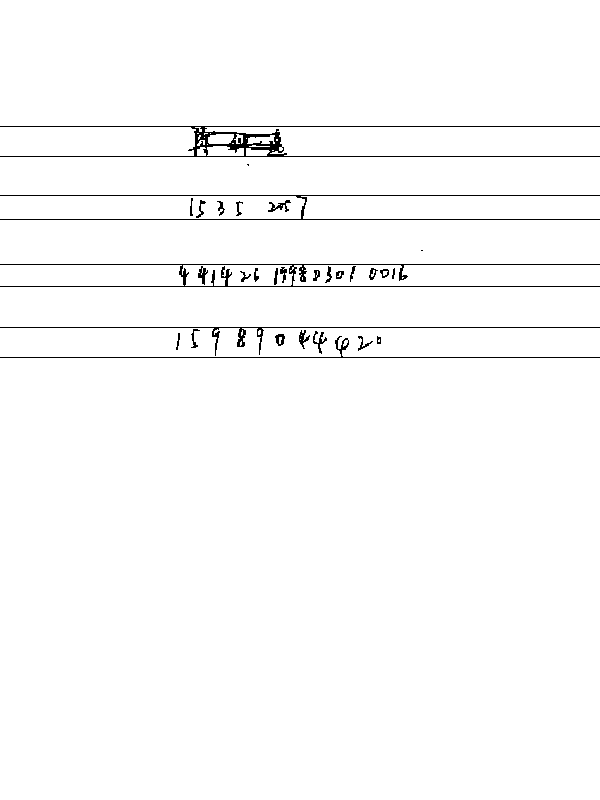 1535 2057
441426 19980301 0016
15989044420